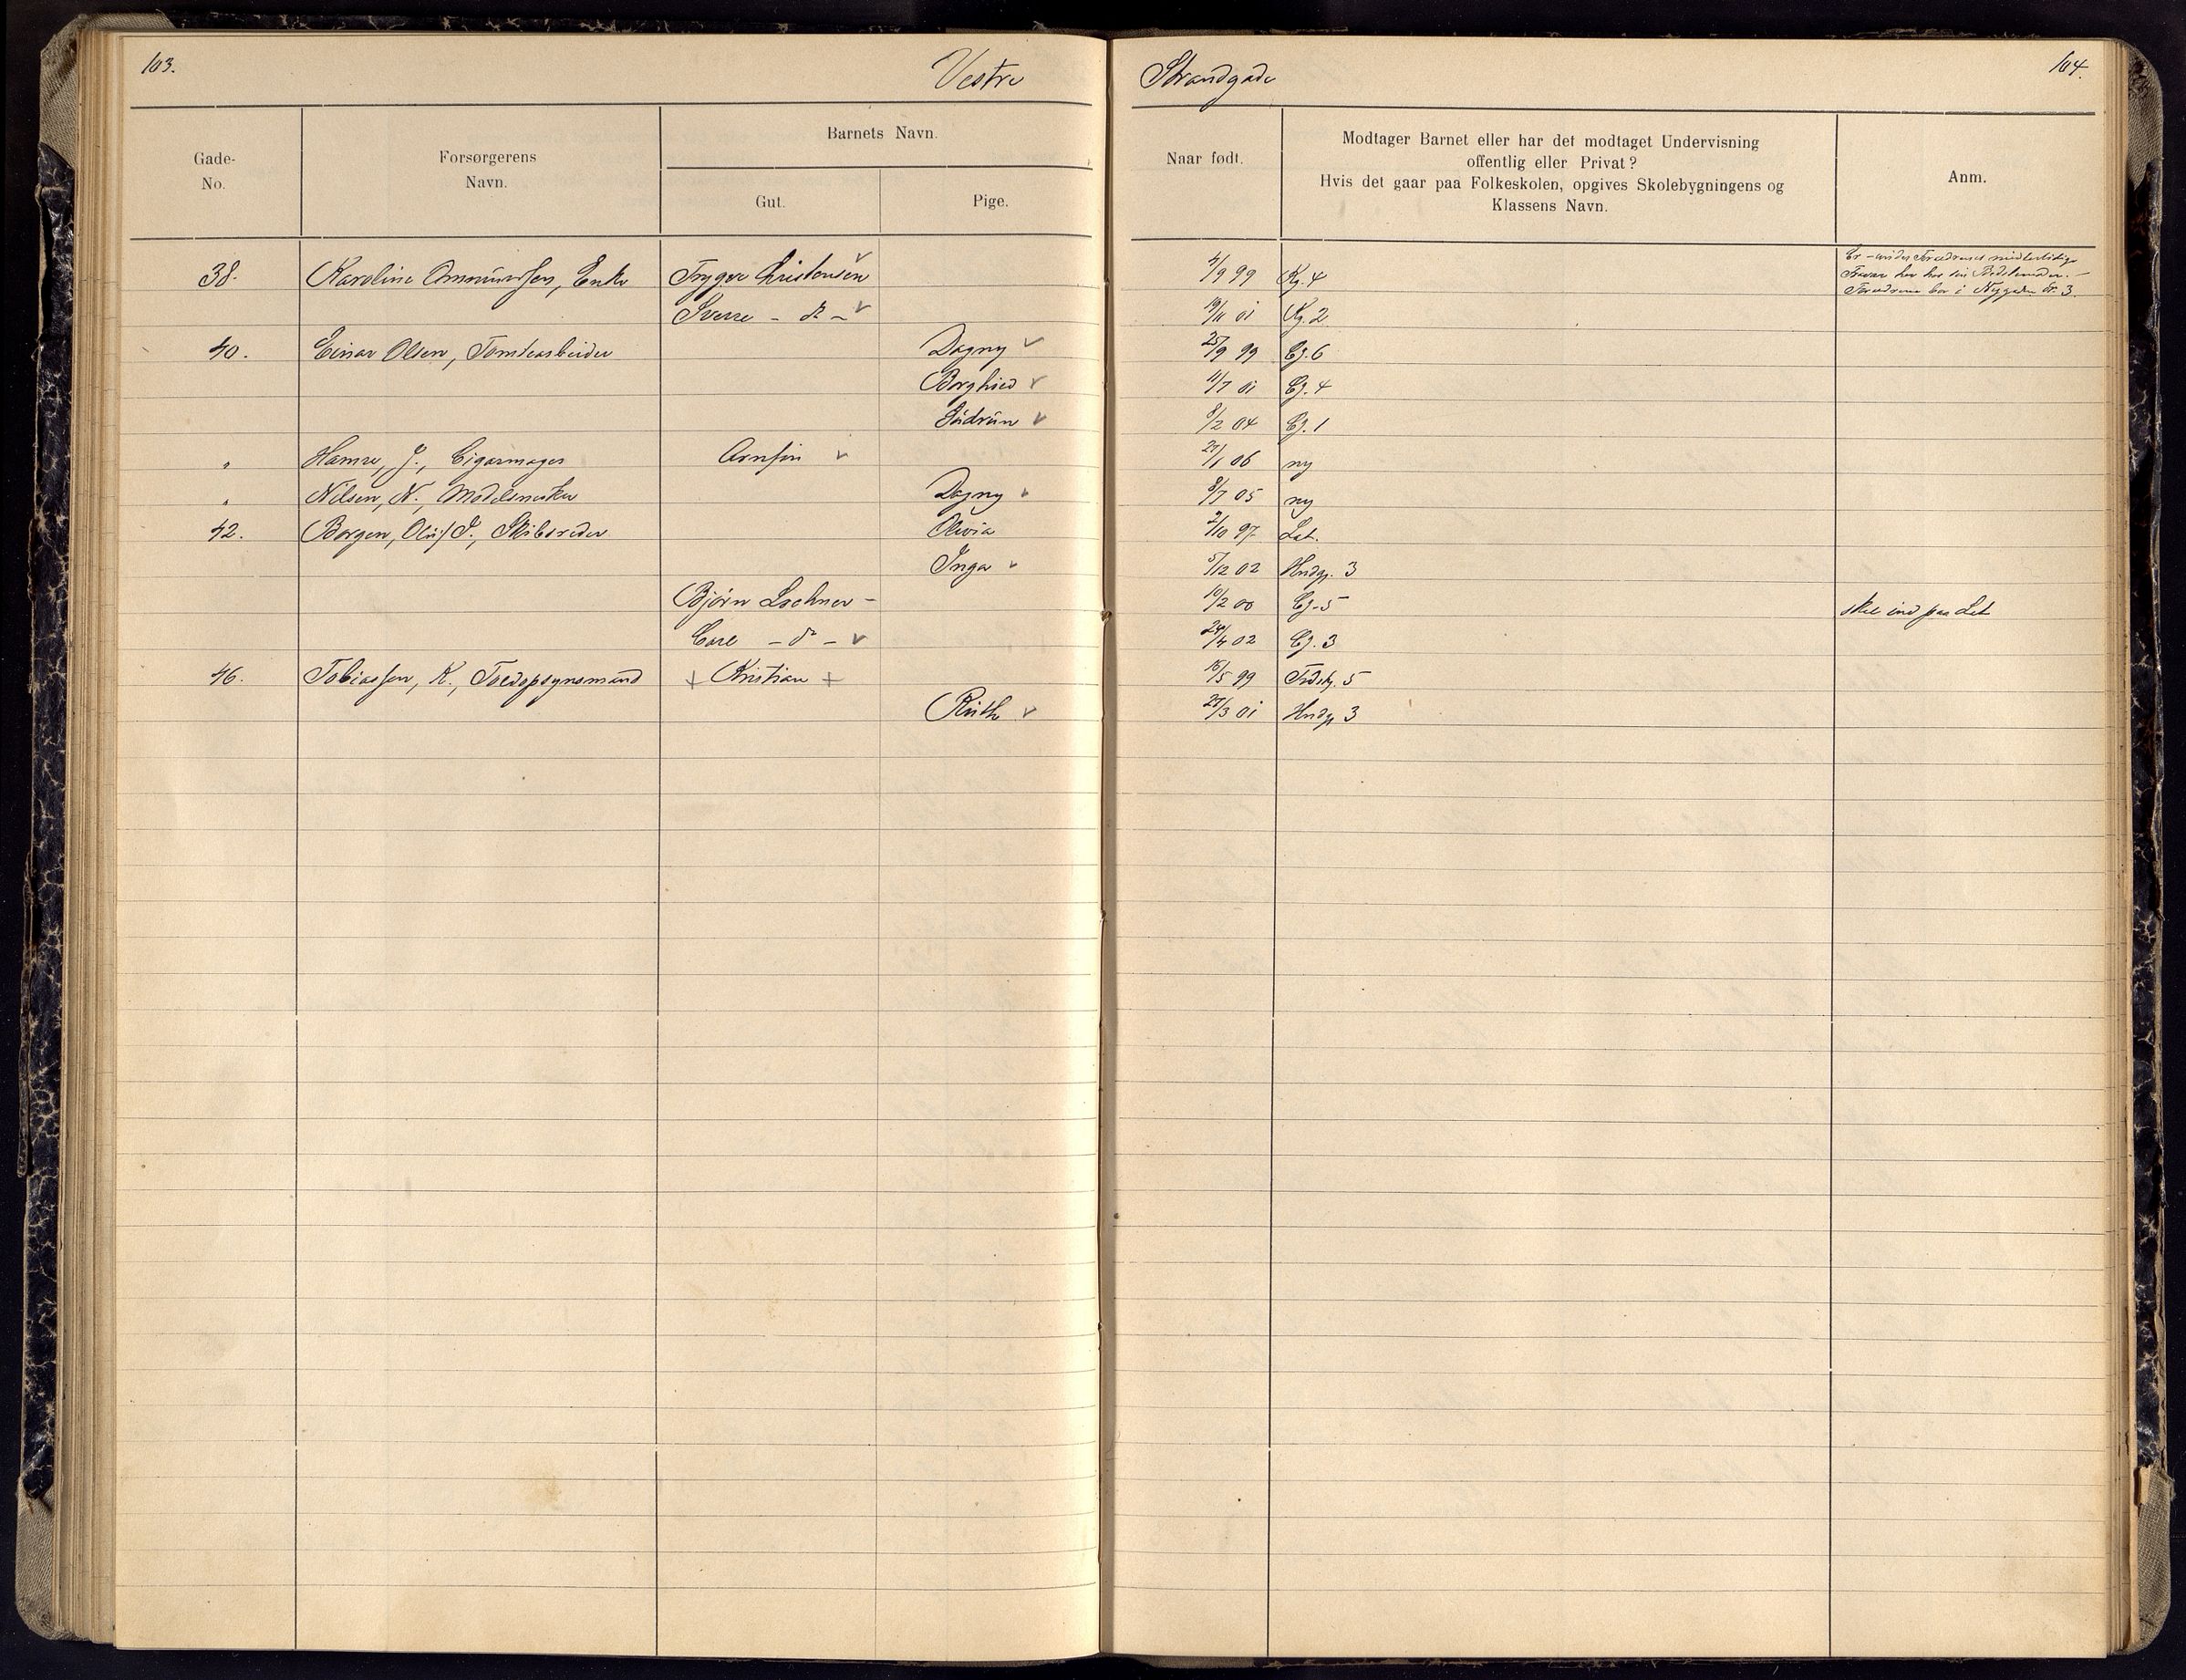 103.
Vestre Strandgade
104.
Gade-
No.
Forsørgerens
Navn.
Barnets Navn.
Gut.
Pige.
Naar født.
Modtager Barnet eller har det modtaget Undervisning
offentlig eller Privat?
Hvis det gaar paa Folkeskolen, opgives Skolebygningens og
Klassens Navn.
Anm.
38. Karoline Ommundsen, Enke Trygve Kristensen 4/9 99 Kg. 4 Er under Forældrenes midlertidige
Fravær her hos sin Bedstemoder. –
Forældrene bor i Nygaden Nr. 3.
Sverre – do – 19/11 01 Kg. 2
40. Einar Olsen, Tomtearbeider Dagny 25/9 99 Eg. 6
Borghild 11/7 01 Eg. 4
Gudrun 8/2 04 Eg. 1
" Hamre, J., Cigarmager Arnfin 27/1 06 ny
" Nilsen, N., Modelsnekker Dagny 8/7 05 ny
42. Borgen, Oluf I., Skibsreder Olivia 2/10 97 Lat.
Inga 5/12 02 Hndg. 3
Bjørn – 10/2 00 Eg. 5 skal ind paa Lat
Carl – do – 24/4 02 Eg. 3
46. Tobiassen, K., Toldopsynsmand + Kristian + 16/5 99 Tordsk. 5
Ruth 27/3 01 Hndg. 3